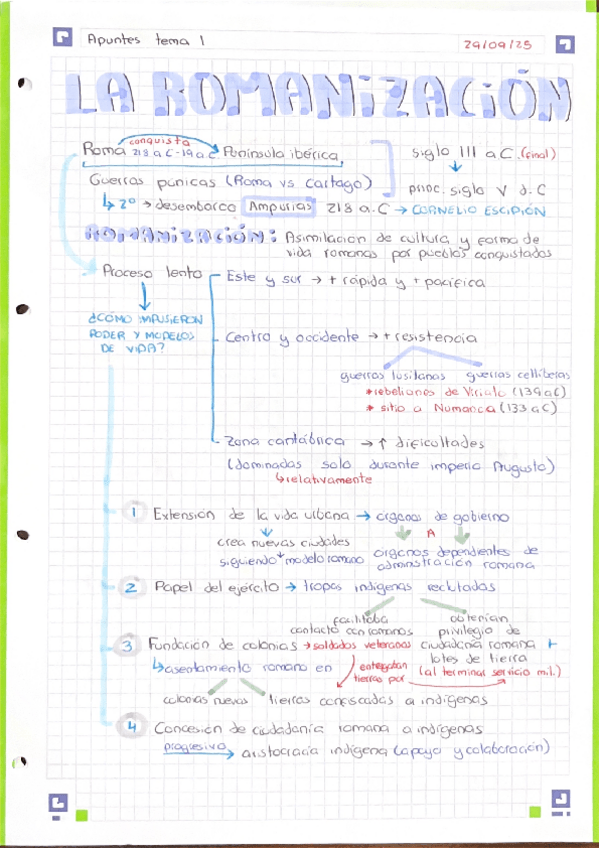 Apuntes tema 1
29/09/25
LA ROMANiZACiÓN
conquista
Roma 218 a.C-19 a.C. Península ibérica,
siglo III a.C. (final)
Guerras punicas (Roma vs Cartago)
princ. siglo V d.C
↳ 2º → desembarco Ampurias 218 a.C → CORNELIO ESCIPIÓN
ROMANiZACiÓN: Asimilacion de cultura y forma de
vida romanas por pueblos conquistados
Proceso lento
Este y sur → + rápida y + pacífica
¿CÓMO IMPUSIERON
PODER Y MODELOS
DE VIDA?
Centro y occidente → + resistencia
guerras lusitanas guerras celtíberas
* rebeliones de Viriato (139 a C)
* sitio a Numanca (133 a C)
Zona cantábrica → ↑ dificultades
(dominadas solo durante imperio Augusto)
↳ relativamente
1 Extensión de la vida urbana → órganos de gobierno
crea nuevas ciudades
siguiendo modelo romano
A
órganos dependientes de
adminstración romana
2 Papel del ejército → tropas indígenas reclutadas
facilitaba
contacto con romanos
obtenían
privilegio de
ciudadanía romana +
lotes de tierra
(al terminal servicio mil.)
3 Fundación de colonias → soldados veteranos
↳ asentamiento romano en
entregaban
tierras por
colonias nuevas tierras confiscadas a indígenas
4 Concesión de ciudadanía romana a indígenas
progresivo → aristocracia indígena (apoyo y colaboración)